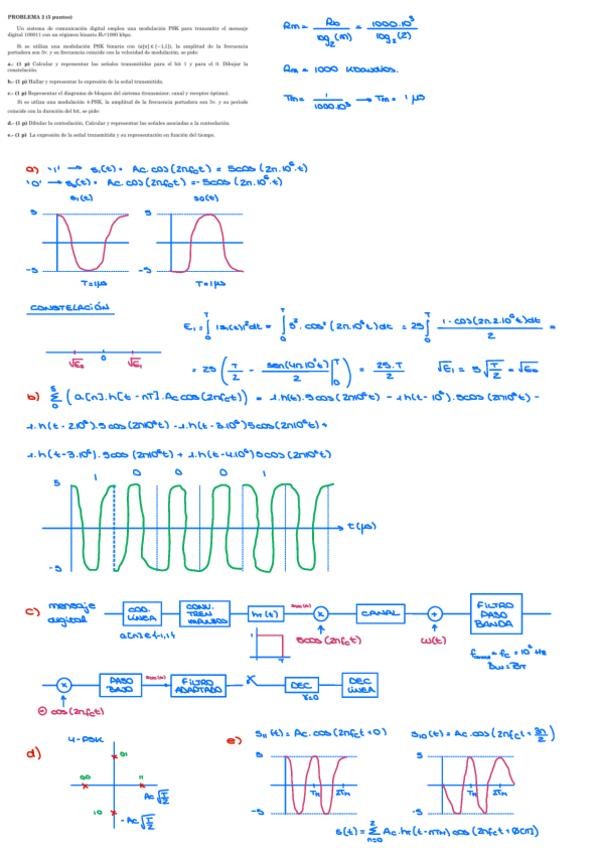 PROBLEMA 2 (5 puntos)
Un sistema de comunicación digital emplea una modulación PSK para transmitir el mensaje
digital 100011 con un régimen binario Rb=1000 kbps.
Si se utiliza una modulación PSK binaria con (a[n] ∈ {−1,1}), la amplitud de la frecuencia
portadora son 5v. y su frecuencia coincide con la velocidad de modulación, se pide:
a.- (1 p) Calcular y representar las señales transmitidas para el bit 1 y para el 0. Dibujar la
constelación.
b.- (1 p) Hallar y representar la expresión de la señal transmitida.
c.- (1 p) Representar el diagrama de bloques del sistema (transmisor, canal y receptor óptimo).
Si se utiliza una modulación 4-PSK, la amplitud de la frecuencia portadora son 5v. y su periodo
coincide con la duración del bit, se pide:
d.- (1 p) Dibujar la constelación. Calcular y representar las señales asociadas a la constelación.
e.- (1 p) La expresión de la señal transmitida y su representación en función del tiempo.
Rm = Rb / log2(M) = 1000.10³ / log2(2)
Rm = 1000 kbaudios.
Tm = 1 / 1000.10³ → Tm = 1 μs
a) '1' → s1(t) = Ac.cos(2πfct) = 5cos(2π.10⁶.t)
'0' → s0(t) = Ac.cos(2πfct) = -5cos(2π.10⁶t)
s1(t) s0(t)
5 5
-5 -5
T=1μs T=1μs
CONSTELACIÓN
E1 = ∫ |s1(t)|²dt = ∫ 5².cos²(2π.10⁶t) = 25 ∫ 1.cos(2π2.10⁶t)dt / 2 =
= 25 (T/2 - sen(4π10⁶t)/2 |) = 25.T/2 √E1 = 5√T/2 = √E0
√E0 0 √E1
b) Σ (a[n].h[t - nT].Ac cos(2πfct)) = 1.h(t).5cos(2π10⁶t) - 1h(t-10⁶).5cos(2π10⁶t) -
1.h(t-2.10⁶).5cos(2π10⁶t) -1.h(t-3.10⁶)5cos(2π10⁶t) +
1.h(t-3.10⁶).5cos(2π10⁶t) + 1.h(t-4.10⁶)5cos(2π10⁶t)
1 0 0 0 1
5
-5
t(μs)
c) mensaje digital
COD. LÍNEA
CONV. TREN IMPULSOS
hT(t)
x
CANAL
+
FILTRO PASO BANDA
a[n]∈{-1,1}
1
T
5cos(2πfct)
W(t)
= fc = 10⁶ Hz
Bw = BT
x
PASO BAJO
FILTRO ADAPTADO
DEC
DEC LÍNEA
γ=0
cos(2πfct)
d) 4-PSK
01
00
11
Ac√T/2
10
-Ac√T/2
e) S11(t) = Ac.cos(2πfct+0) S10(t) = Ac.cos(2πfct + 3π/2)
5 5
Tm 2Tm Tm 2Tm
-5 -5
s(t) = Σ Ac.hT(t-nTm)cos(2πfct + Ø[n])
n=0